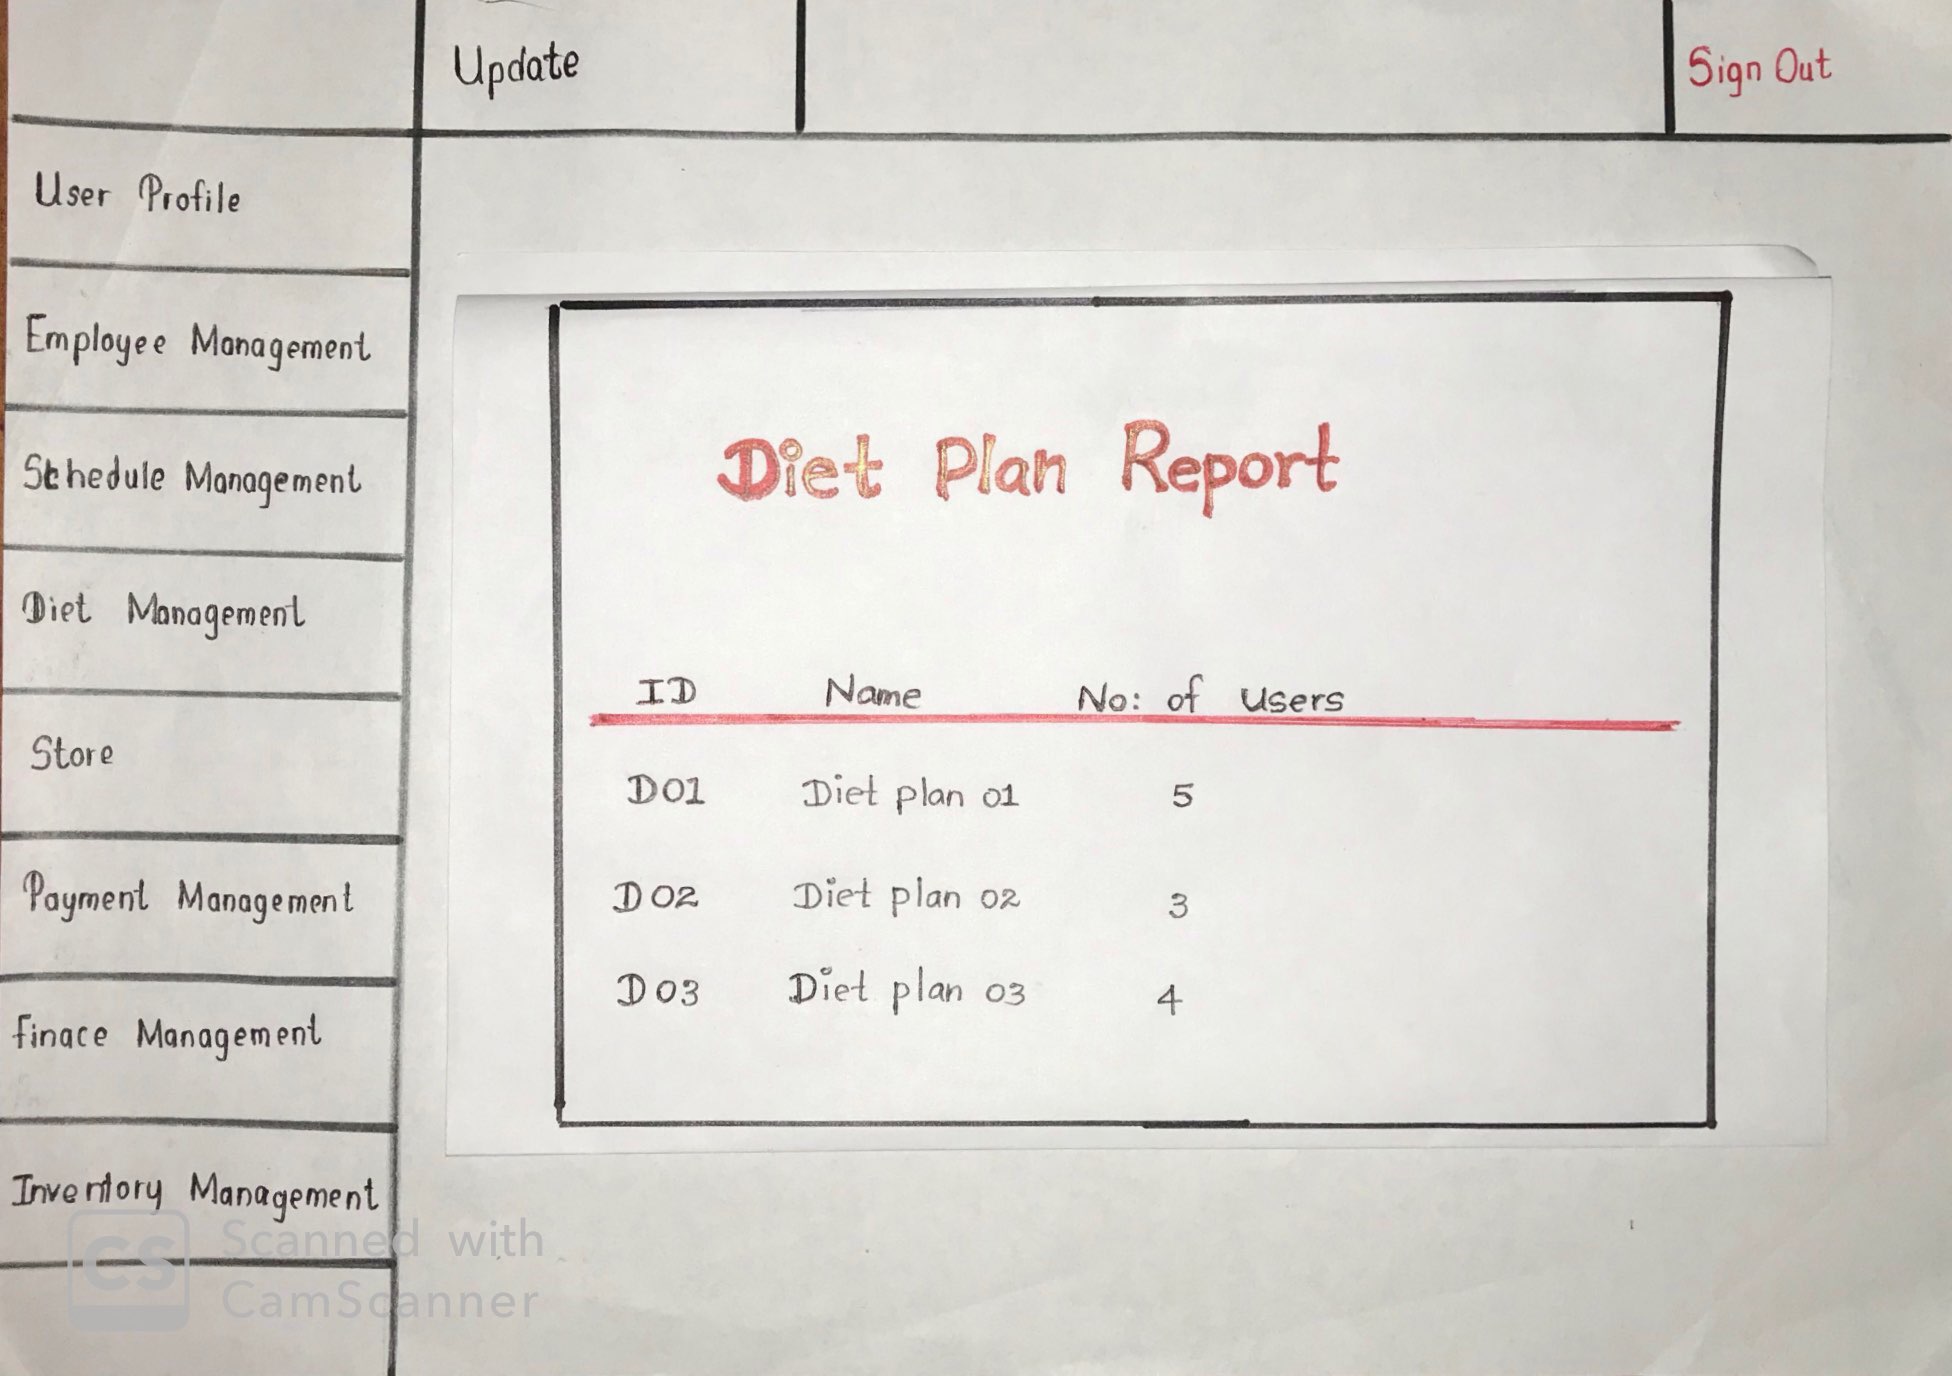 Update
Sign Out
User Profile
Employee Management
Schedule Management
Diet Management
Store
Payment Management
finace Management
Inventory Management
Diet Plan Report
ID Name No: of users
D01 Diet plan 01 5
D02 Diet plan 02 3
D03 Diet plan 03 4
CS Scanned with
CamScanner